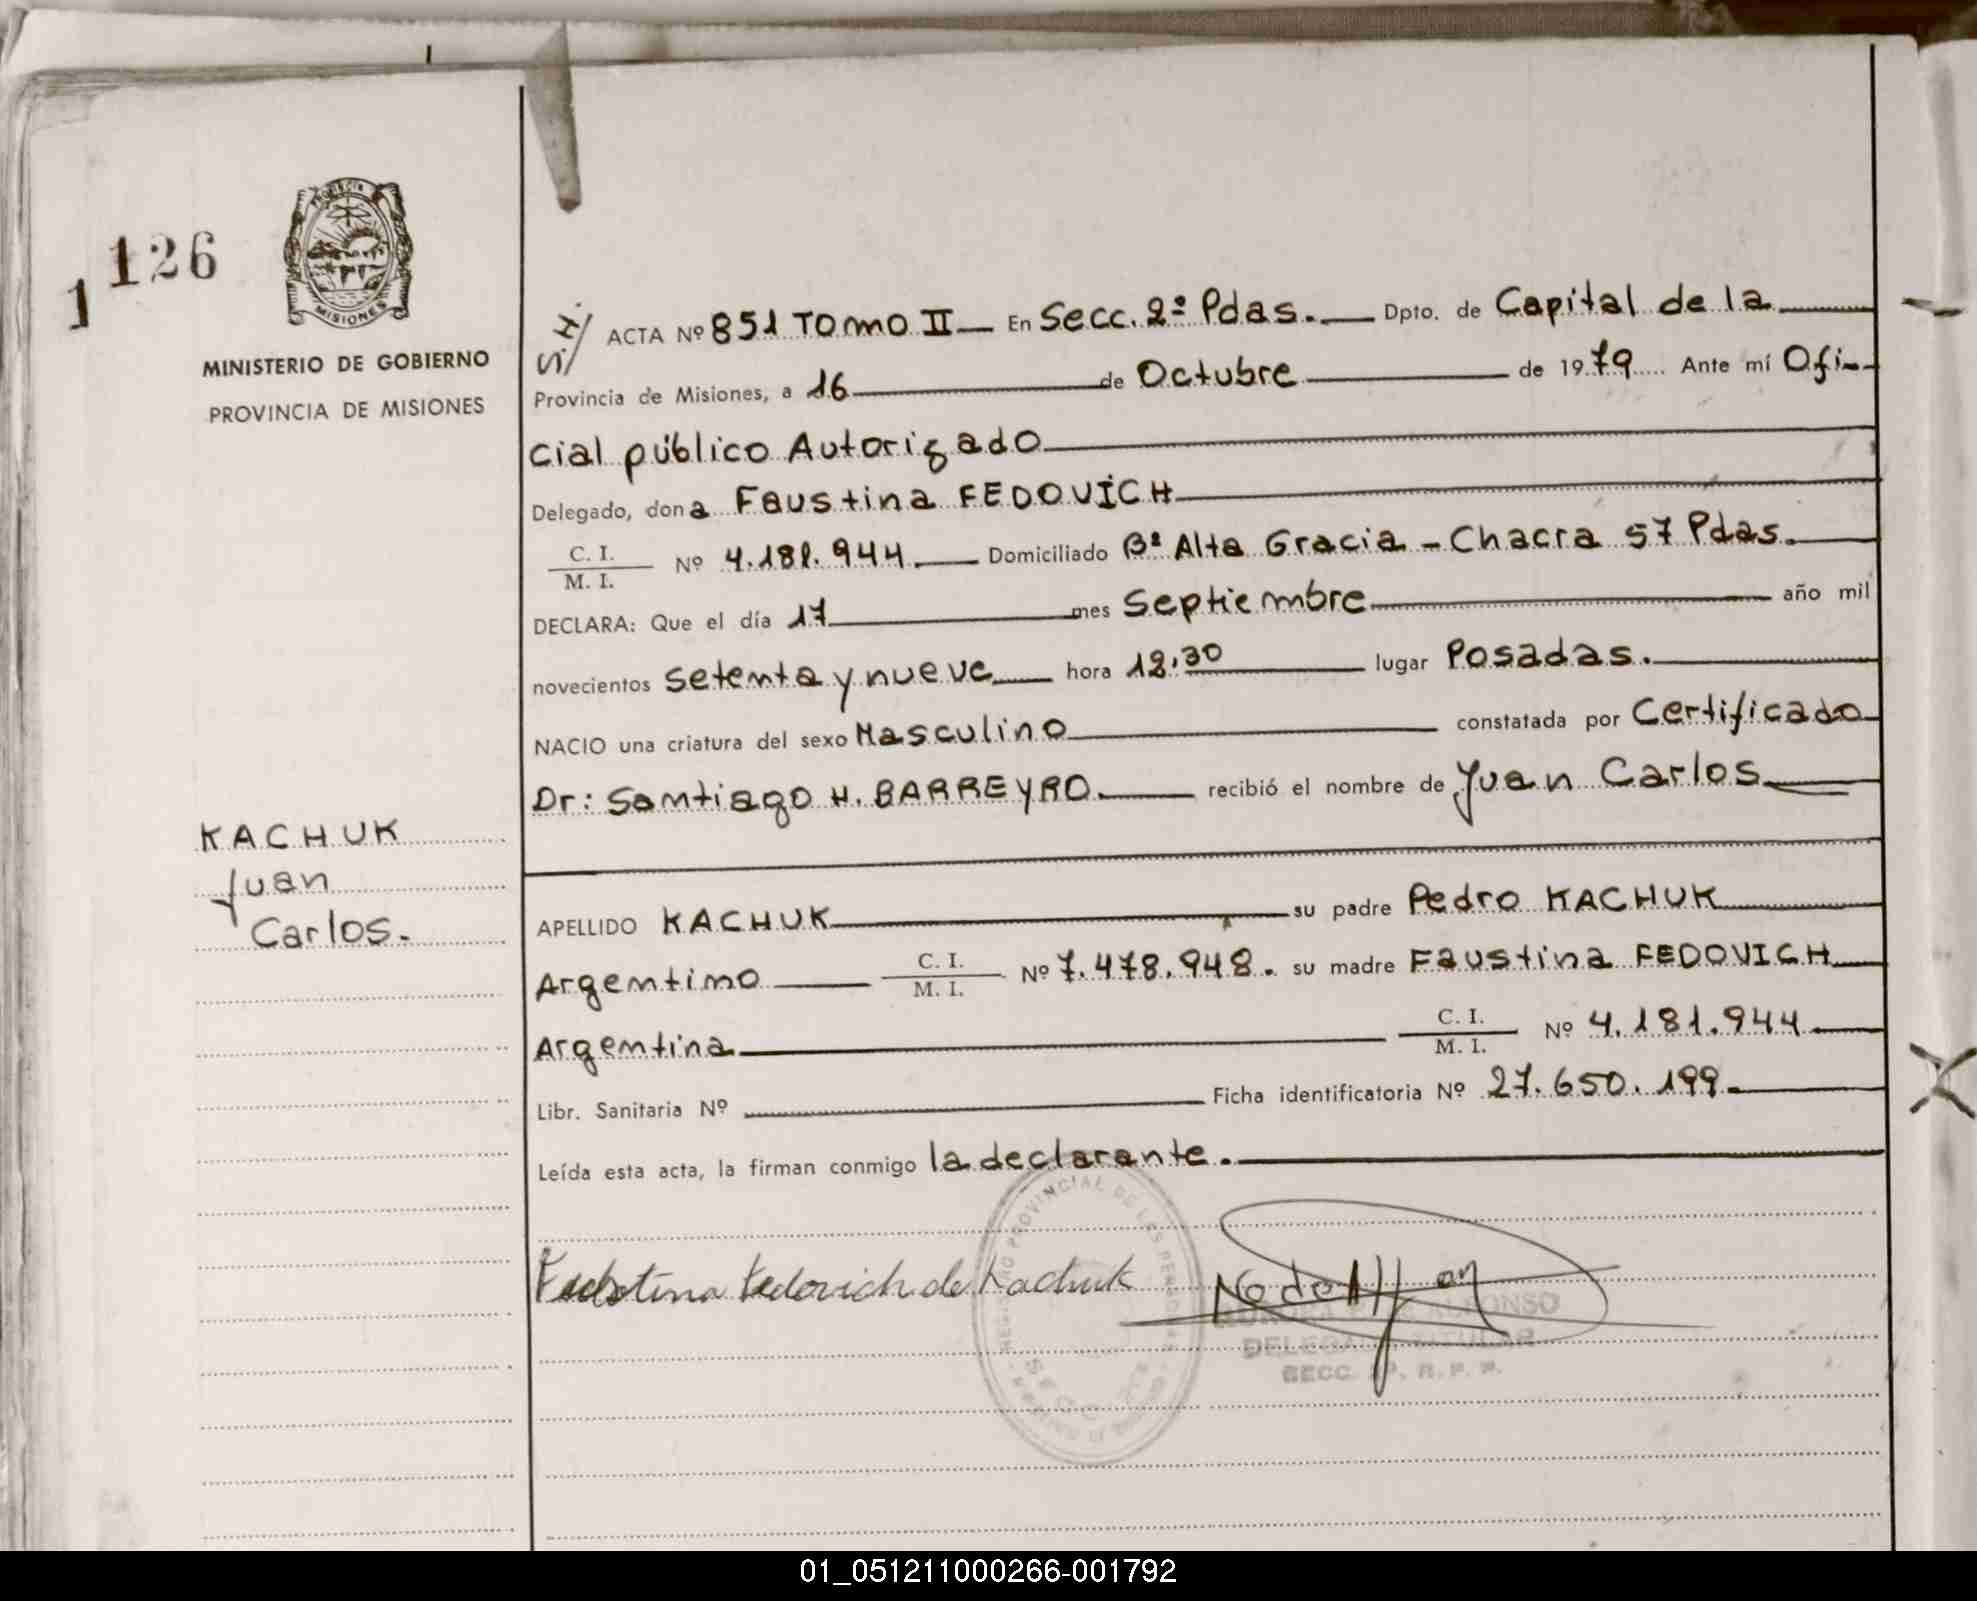 1
126
PROVINCIA
MISIONES
MINISTERIO DE GOBIERNO
PROVINCIA DE MISIONES
KACHUK
Juan
Carlos.
ACTA Nº 851 Tomo II En Secc. 2ª Pdas. Dpto. de Capital de la
Provincia de Misiones, a 16 de Octubre de 1979 Ante mí Ofi-
cial público Autorizado
Delegado, dona Faustina FEDOVICH
C. I.
M. I. Nº 4.181.944. Domiciliado Bº Alta Gracia - Chacra 57 Pdas.
DECLARA: Que el día 17 mes Septiembre año mil
novecientos setenta y nueve hora 12,30 lugar Posadas.
NACIO una criatura del sexo Masculino constatada por Certificado
Dr: Santiago H. BARREYRO. recibió el nombre de Juan Carlos
APELLIDO KACHUK su padre Pedro KACHUK
Argentino C. I.
M. I. Nº 7.478.948. su madre Faustina FEDOVICH
Argentina C. I.
M. I. Nº 4.181.944
Libr. Sanitaria Nº Ficha identificatoria Nº 27.650.199.
Leída esta acta, la firman conmigo la declarante.
Faustina Fedovich de Kachuk
REGISTRO PROVINCIAL DE LAS PERSONAS
ALFONSO
DELEGADA TITULAR
SECC. 2ª. R. P. P.
01_051211000266-001792